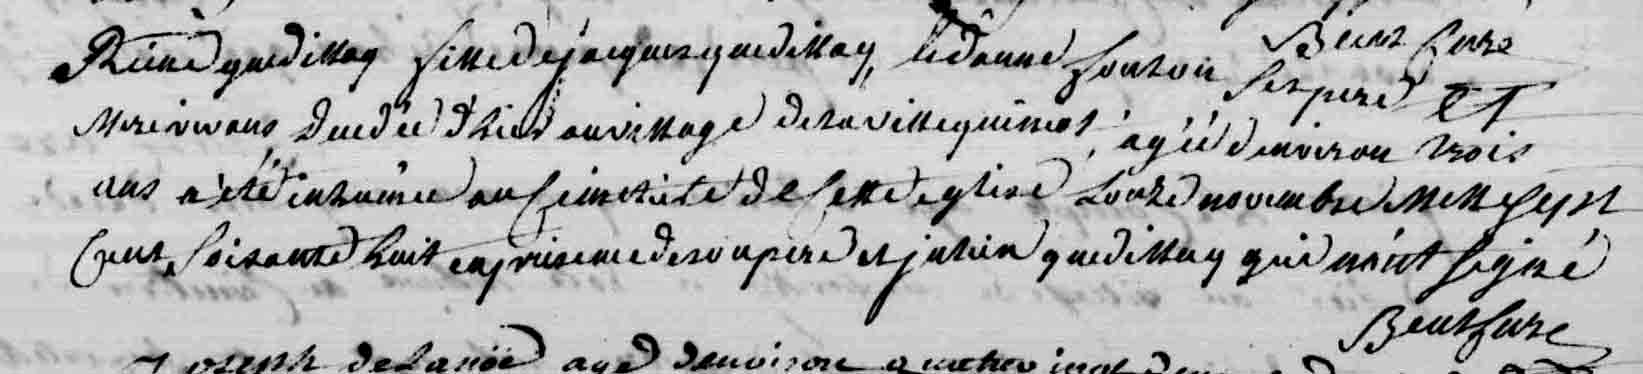 Beust Curé
Reine quedillay fille de jacques quedillay, et danne Gonton ses pere et
Mere vivans, decedée d'hier au village de la ville guimont, agée denviron trois
ans a été inhumée au Cimetiere de Cette eglise Lonze novembre Mill Sept
Cent Soixante huit en presence de son pere et julien quedillay qui n'ont signé
Beust Curé
Joseph Delanoë agé denviron quatrevingt